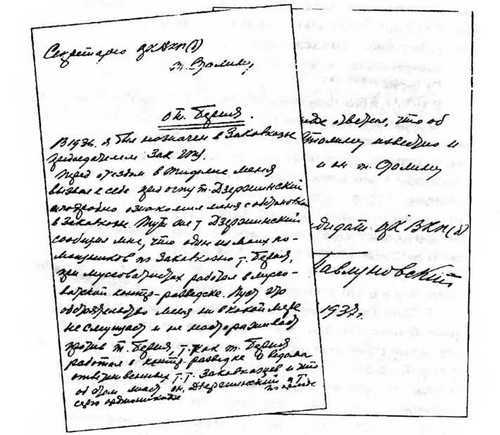 Секретарю ЦК ВКП(б)
т. Сталину
о т. Берия.
В 1926 я был назначен в Закавказье
председателем Зак ГПУ.
Перед отъездом в Тифлис меня
вызвал к себе пред. ОГПУ т. Дзержинский
и подробно ознакомил меня с обстановкой
в Закавказье. Тут же т. Дзержинский
сообщил мне, что один из моих по-
мощников по Закавказью т. Берия,
при мусаватистах работал в мусо-
ватской контр-разведке. Пусть это
обстоятельство меня ни в какой мере
не смущает и не настораживает
против т. Берия, т. как т. Берия
работал в контр-разведке с ведома
ответственных т.т. Закавказцев и что
об этом знает он, Дзержинский и т.
Серго Орджоникидзе
ответил, что об
Сталину известно и
и он т. Сталину
Кандидат ЦК ВКП(б)
Павлуновский
1937г.